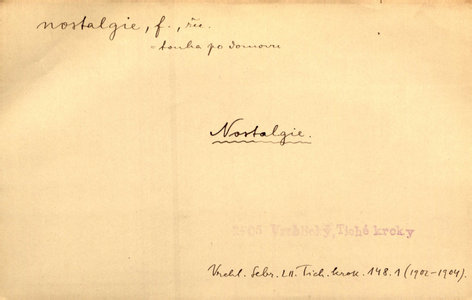 nostalgie, f., řec.
= touha po domovu
Nostalgie.
2505 Vrchlický, Tiché kroky
Vrchl. Sebr. LII. Tich. krok. 148.1 (1902-1904).